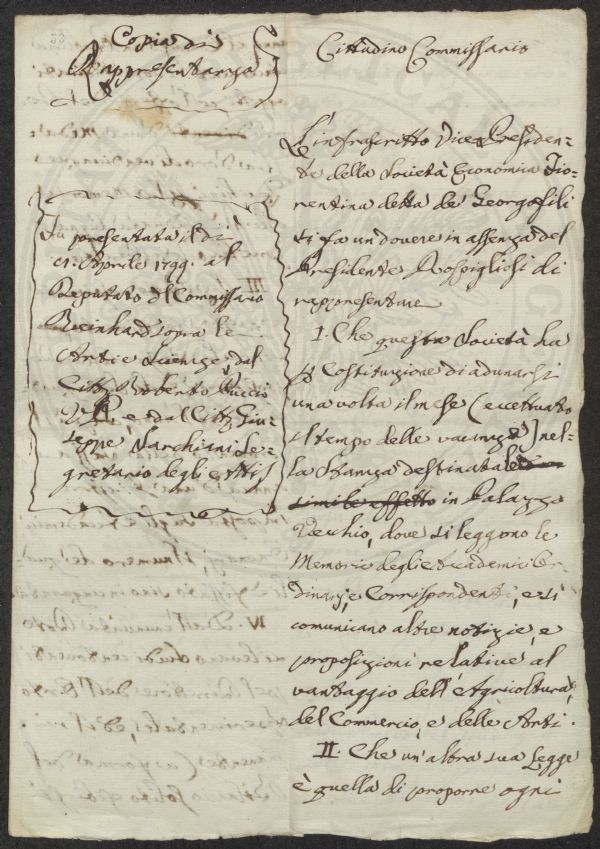 Copia di
Rappresentanza
Fu presentata il dì
Aprile 1799. al
Deputato del Commissario
Reinhard sopra le
Arti e Scienze, dal
Citt. Roberto Puccio
V. P. e dal Citt. Giu-
seppe Sarchiani Se-
gretario degli Atti
Cittadino Commissario
L'infrascritto Vice Presiden-
te della Società Economia Fio-
rentina detta de' Georgofili
si fa un dovere in assenza del
Presidente Rospigliosi di
rappresentare
I. Che questa Società ha
p Costituzione di adunarsi
una volta il mese (eccettuato
il tempo delle vacanze) nel-
la Stanza destinatale
simile effetto in Palazzo
Vecchio, dove si leggono le
Memorie degli Accademici Or-
dinarj, e Corrispondenti, e si
comunicano altre notizie, e
proposizioni relative al
vantaggio dell'Agricoltura,
del Commercio, e delle Arti.
II. Che un'altra sua Legge
è quella di proporre ogni